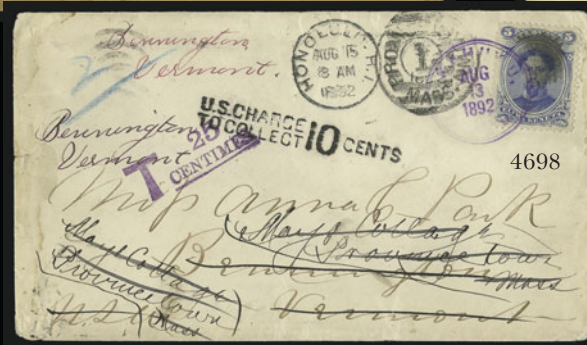 Bennington
Vermont.
HONOLULU H.I.
AUG 15
8 AM
1892
1
MASS.
AUG
13
1892
U.S. CHARGE
TO COLLECT 10 CENTS
Bennington
Vermont
T 25
CENTIMES
4698
Miss Anna C Park
Mayo Cottage
Provincetown
Mass
Bennington
Vermont
Mayo Cottage
Provincetown
Mass